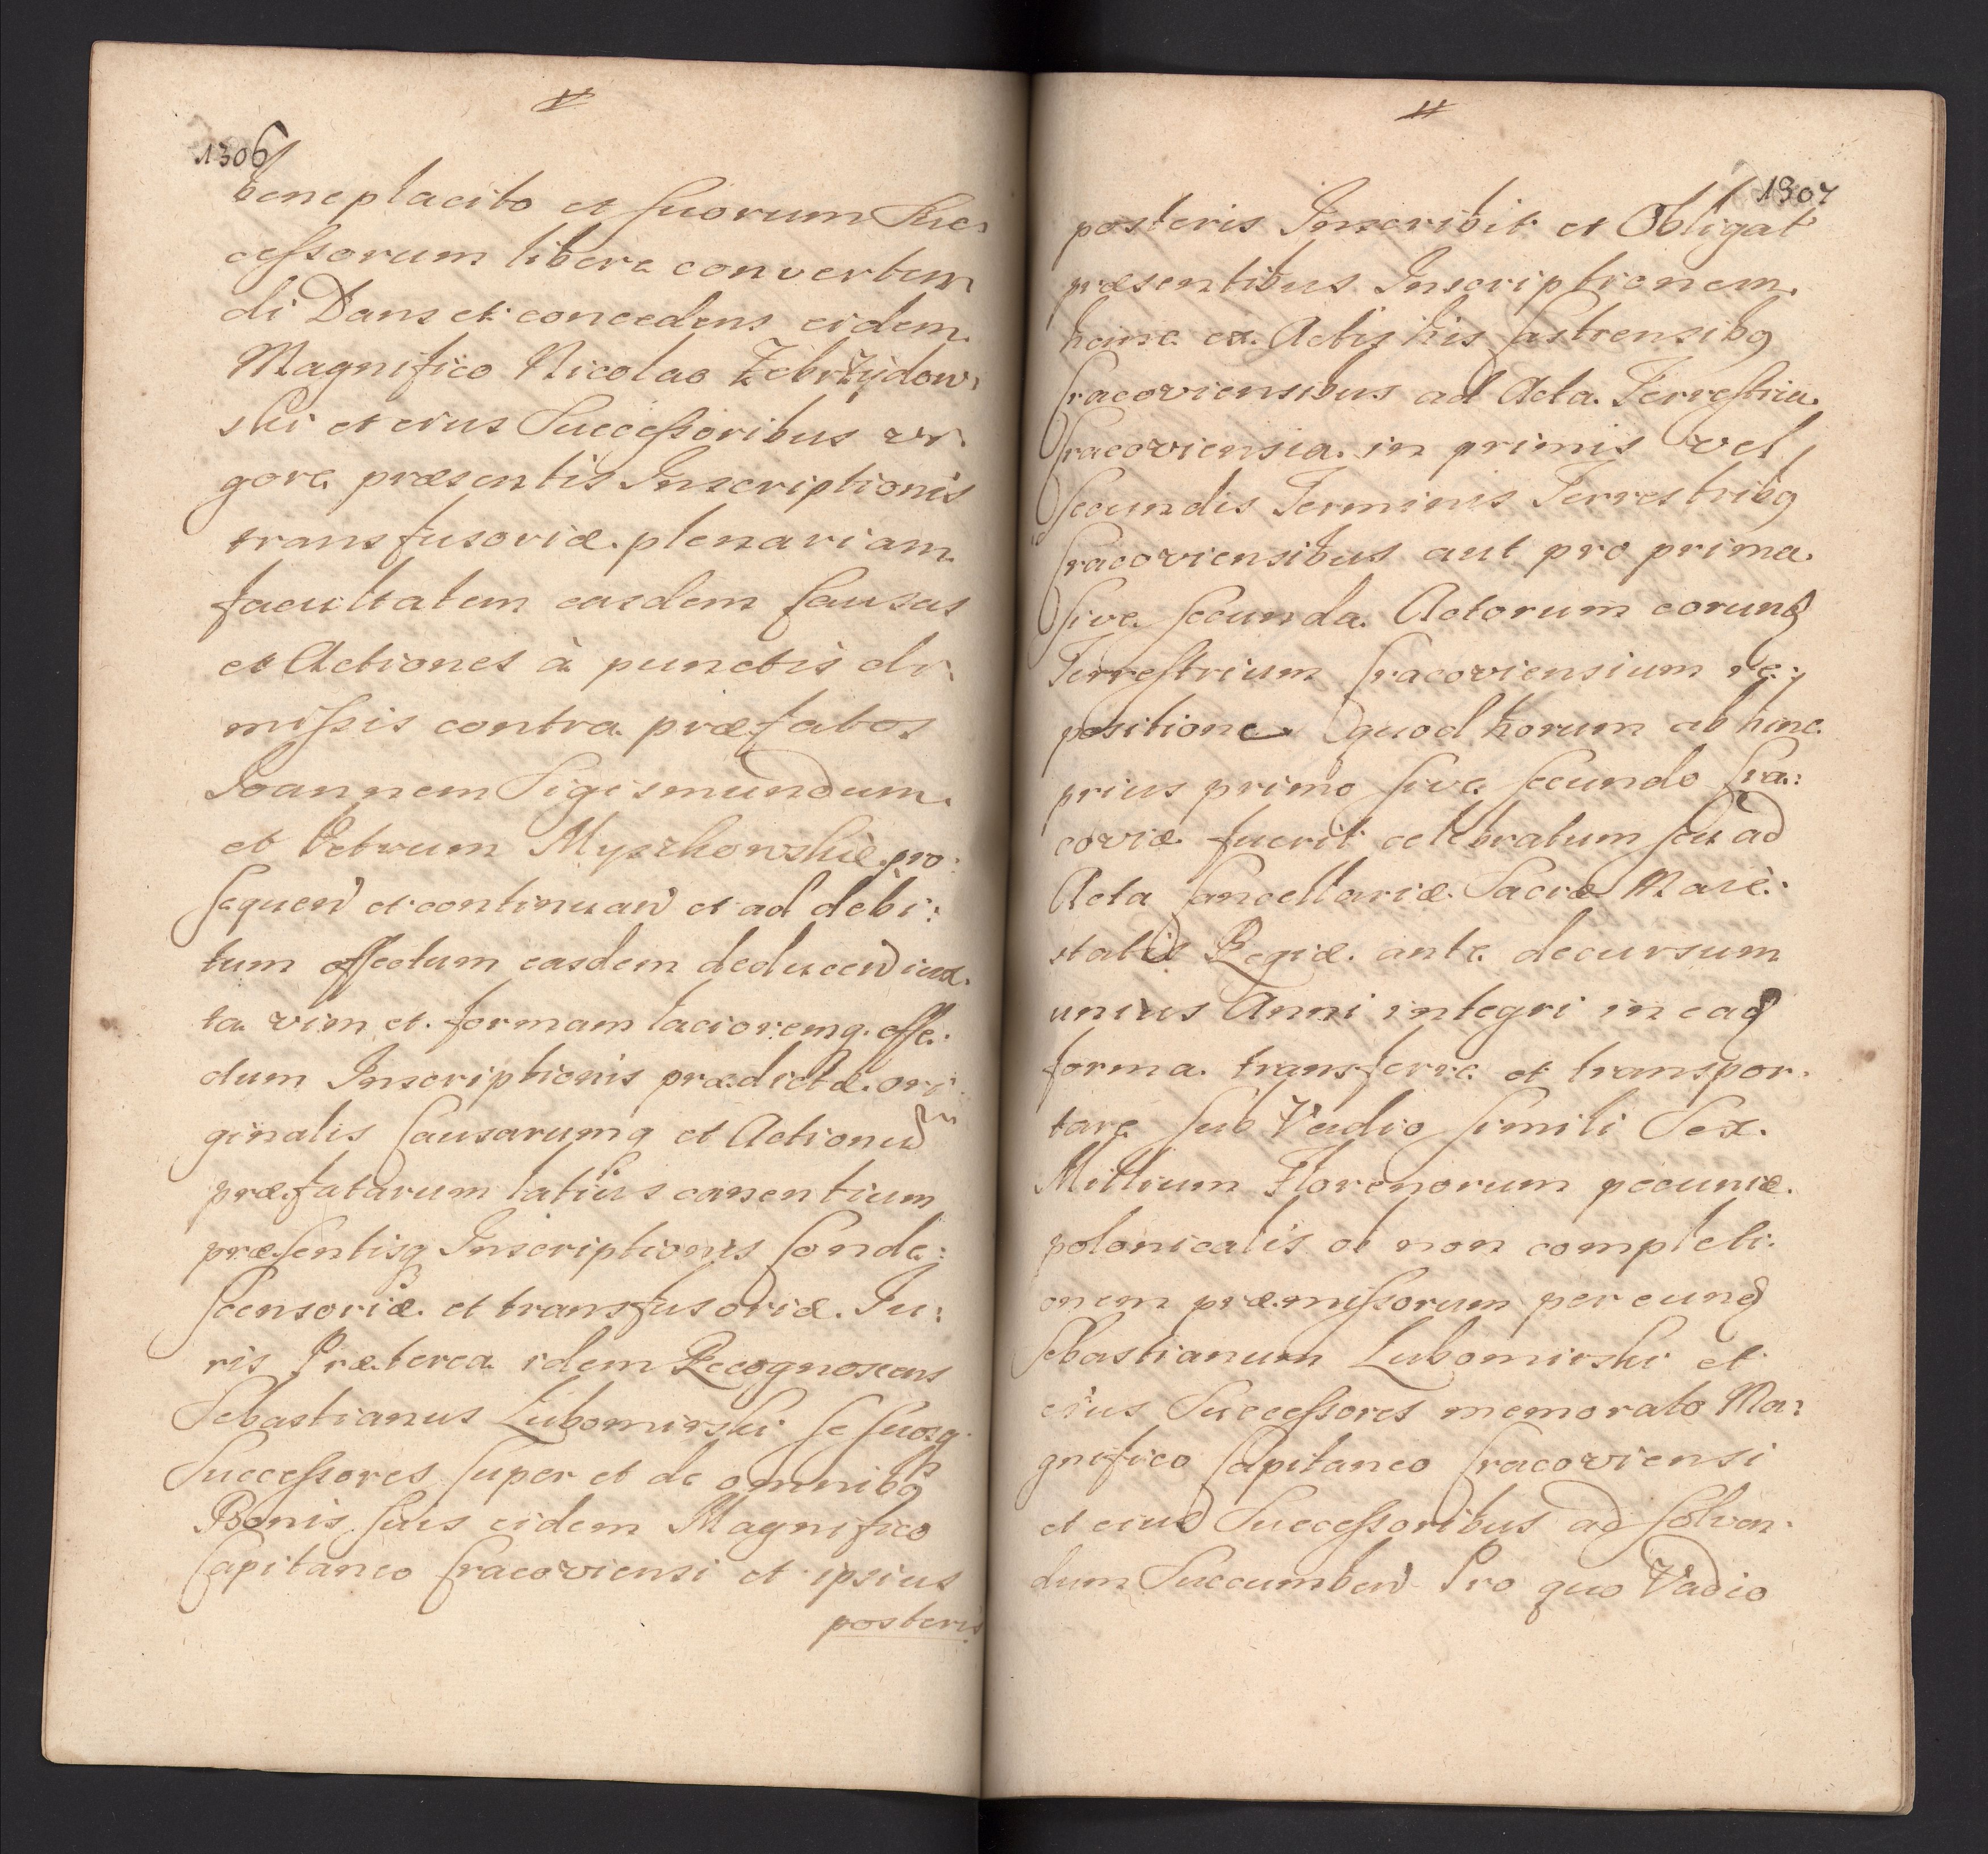 1306
beneplacito et suorum Suc:
cessorum libere converten
di Dans et concedens eidem
Magnifico Nicolao Zebrzÿdow:
ski et eius Successoribus vi:
gore præsentis Inscriptionis
transfusoriæ plenariam
facultatem easdem Causas
et Actiones à punctis di:
missis contra præfatos
Joannem Sigismundum
et Petrum Myszkowskie pro:
sequen et continuan et ad debi:
tum effectum easdem deducen iux
ta vim et formam latioremq effe:
dum Inscriptionis prædictæ ori
ginalis Causarumq et Actionum
præfatarum latius canentium
præsentisq Inscriptionis Conde:
scensoriæ et transfusoriæ Ju:
ris Præterea idem Recognoscens
Sebastianus Lubomirski se suosq
Successores super et de omnibq
Bonis suis eidem Magnifico
Capitaneo Cracoviensi et ipsius
posteris
1307
posteris Inscribit et Obligat
præsentibus Inscriptionem
hanc ex Actis his Castrensibq
Cracoviensibus ad Acta Terrestria
Cracoviensia in primis vel
Secundis Terminis Terrestribq
Cracoviensibus aut pro prima
sive secunda Actorum eorund
Terrestrium Cracoviensium re:
positione quod horum ab hinc
prius primo sive secundo Cra:
coviæ fuerit celebratum seu ad
Acta Cancellariæ Sacræ Maie:
statis Regiæ ante decursum
unius Anni integri in ead
forma transferre et transpor:
tare sub Vadio simili Sex
Millium Florenorum pecuniæ
polonicalis ob non completi:
onem præmissorum per eund
Sebastianum Lubomirski et
eius Successores memorato Ma:
gnifico Capitaneo Cracoviensi
et eius Successoribus ad solven:
dum Succumben Pro quo Vadio